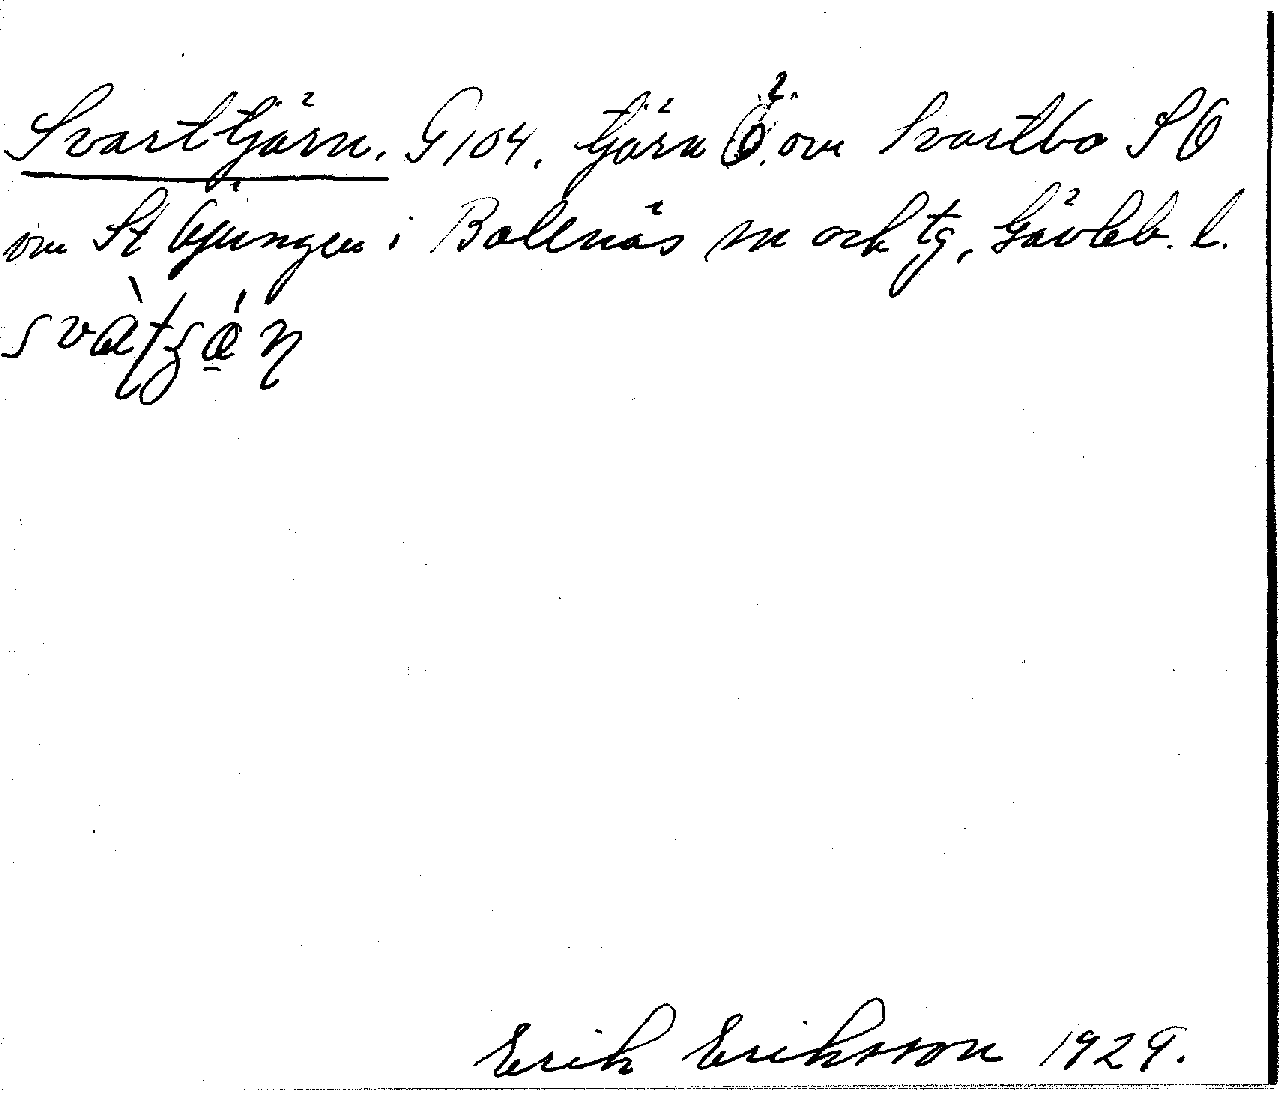 Svarttjärn. G 104. tjärn Ö. om Svartbo S O
om St Öjungen i Bollnäs sn och tg, Gävleb. l.
Erik Eriksson 1929.